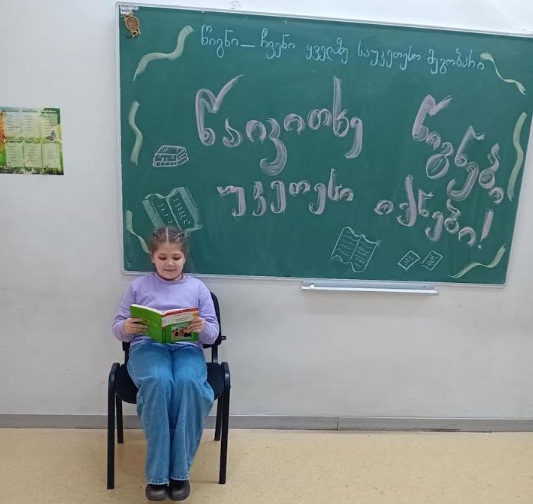 წიგნი — ჩვენი ყველაზე საუკეთესო მეგობარი
წაიკითხე წიგნები,
უკეთესი იქნები!